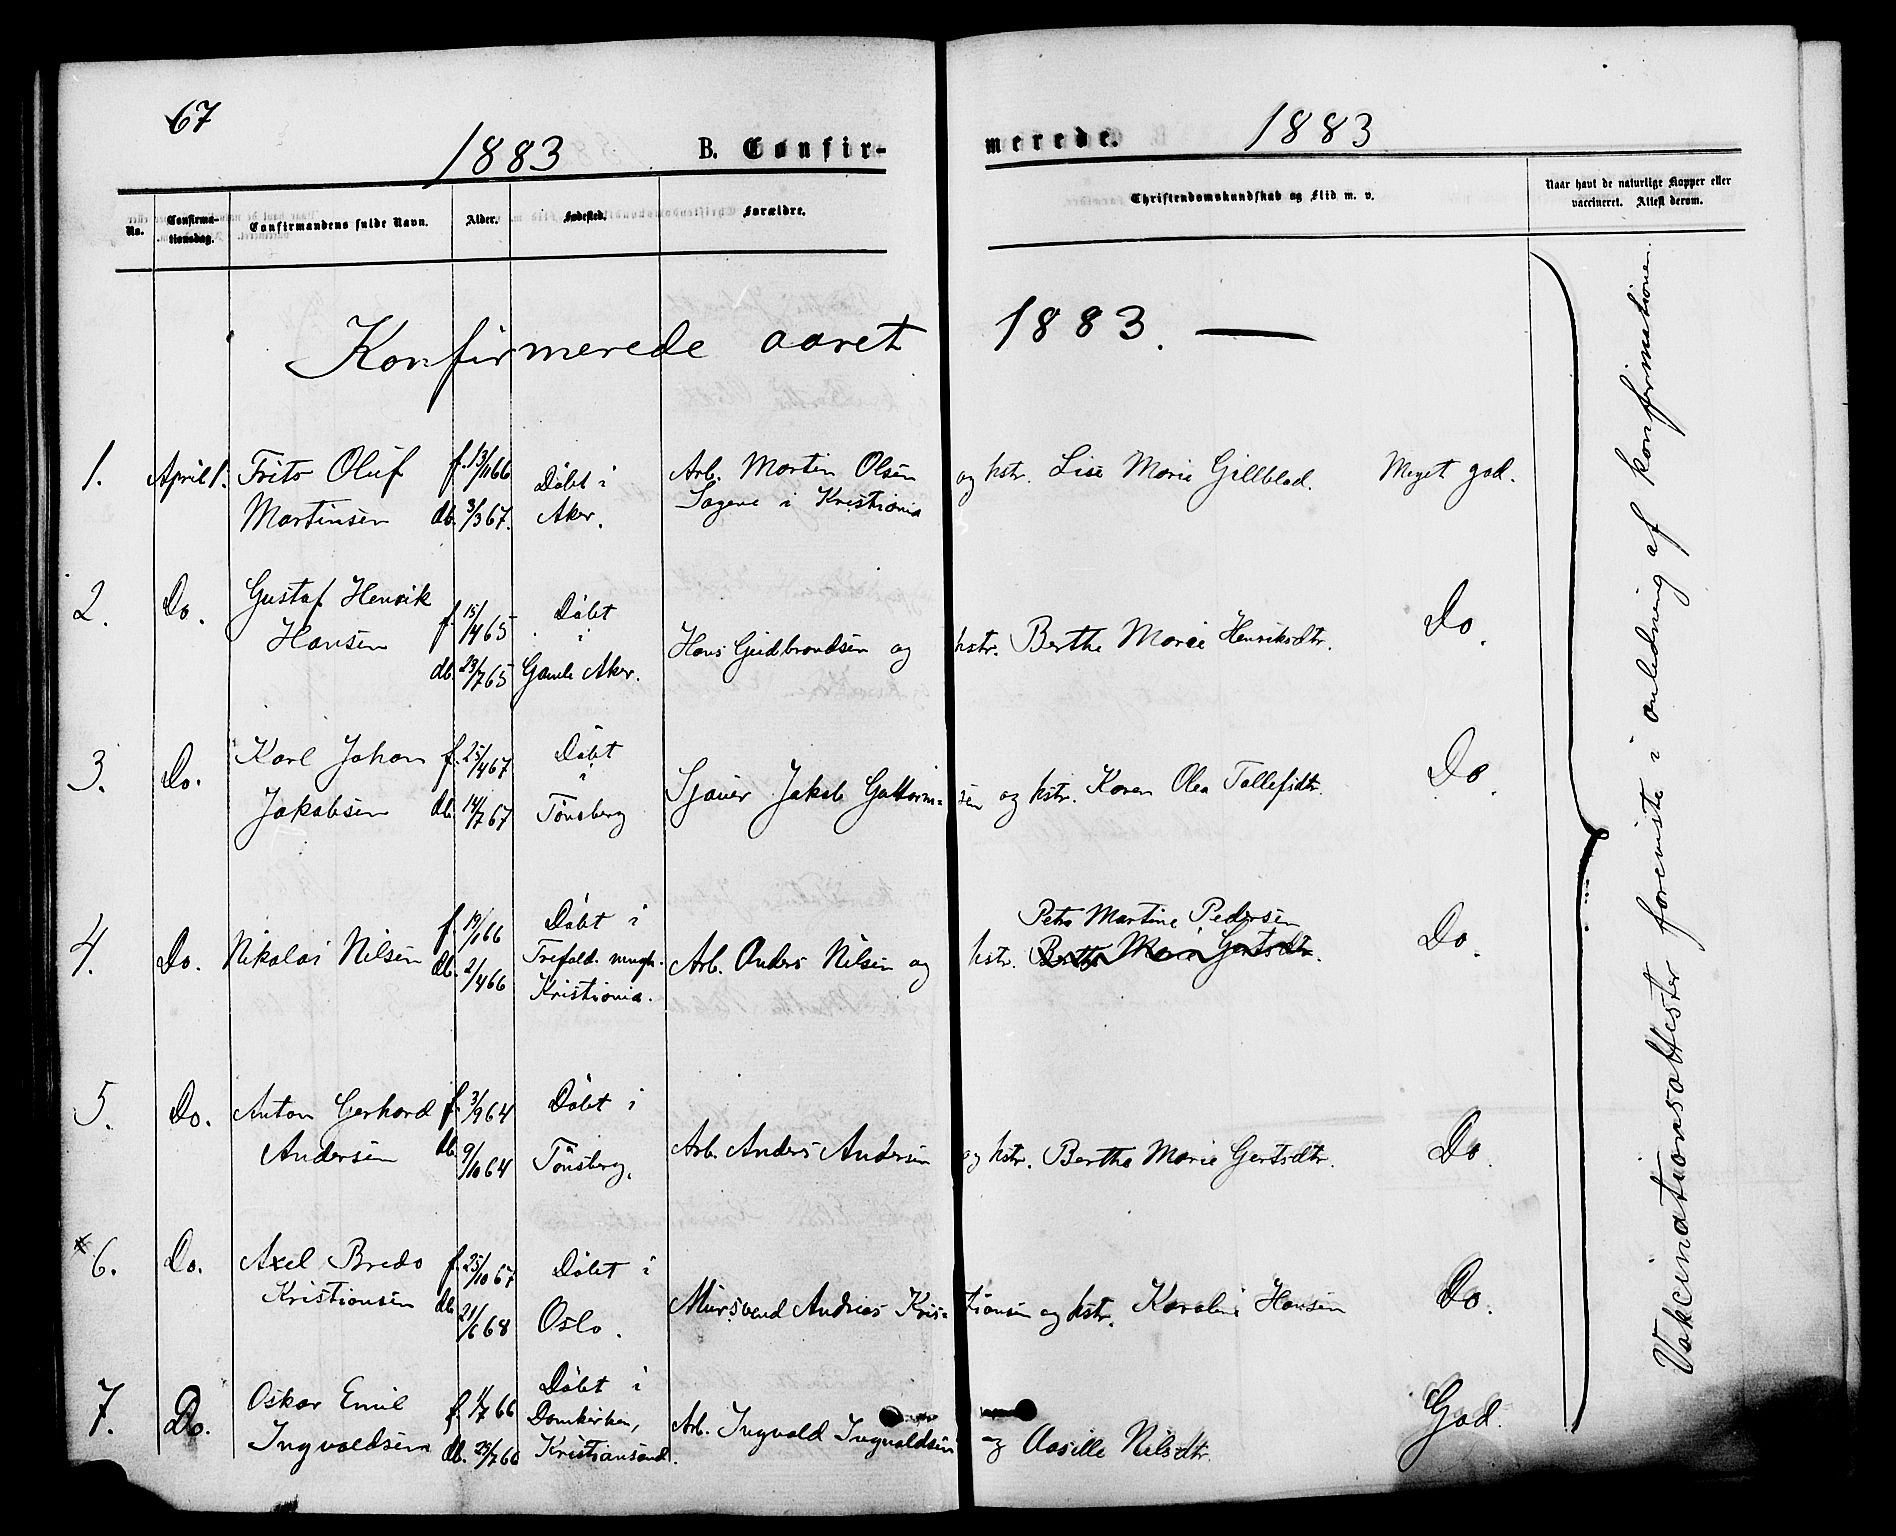 67
1883 B. Confirmerede. 1883
No.
Confirma-
tionsdag.
Confirmandens fulde Navn.
Alder.
Fødested.
Forældre.
Christendomskundskab og Flid m. v.
Naar havt de naturlige Kopper eller
vaccineret. Attest derom.
Konfirmerede aaret 1883. —
1. April 1. Frits Oluf f. 13/11 66 Döbt i Arb. Martin Olsen og hstr. Lise Marie Gillblad. Meget god.
Martinsen db. 3/3 67. Aker. Sagene i Kristiania
2. Do. Gustaf Henrik f. 15/4 65 Döbt Do.
Hansen i Hans Gudbrandsen og hstr. Berthe Marie Henriksdtr.
db. 23/7 65 Gamle Aker.
3. Do. Karl Johan f. 25/4 67 Döbt Do.
i Sjauer Jakob Guttormsen og hstr. Karen Olea Tollefsdtr.
Jakobsen db. 14/7 67 Tönsberg
4. Do. Nikolai Nilsen f. 19/1 66 Döbt i Petra Martine Pedersen Do.
db. 2/4 66 Trefold. mngh. Arb. Anders Nilsen og hstr. Berthe Marie Gertsdtr.
Kristiania.
5. Do. Anton Gerhard f. 3/9 64 Döbt i
Andersen db. 9/10 64 Tönsberg. Arb. Anders Andersen og hstr. Berthe Marie Gertsdtr. Do.
6. Do. Axel Bredo f. 25/10 67 Döbt i
Kristiansen db. 21/6 68 Oslo. Mursvend Andreas Kristiansen og hstr. Karoline Hansen Do.
7. Do. Oskar Emil f. 1/7 66 Döbt i
Domkirken, Arb. Ingvald Ingvaldsen og Aasille Nilsdtr. God.
Ingvaldsen db. 29/7 66 Kristiansand.
Vakcinationsattester foreviste i anledning af konfirmationen